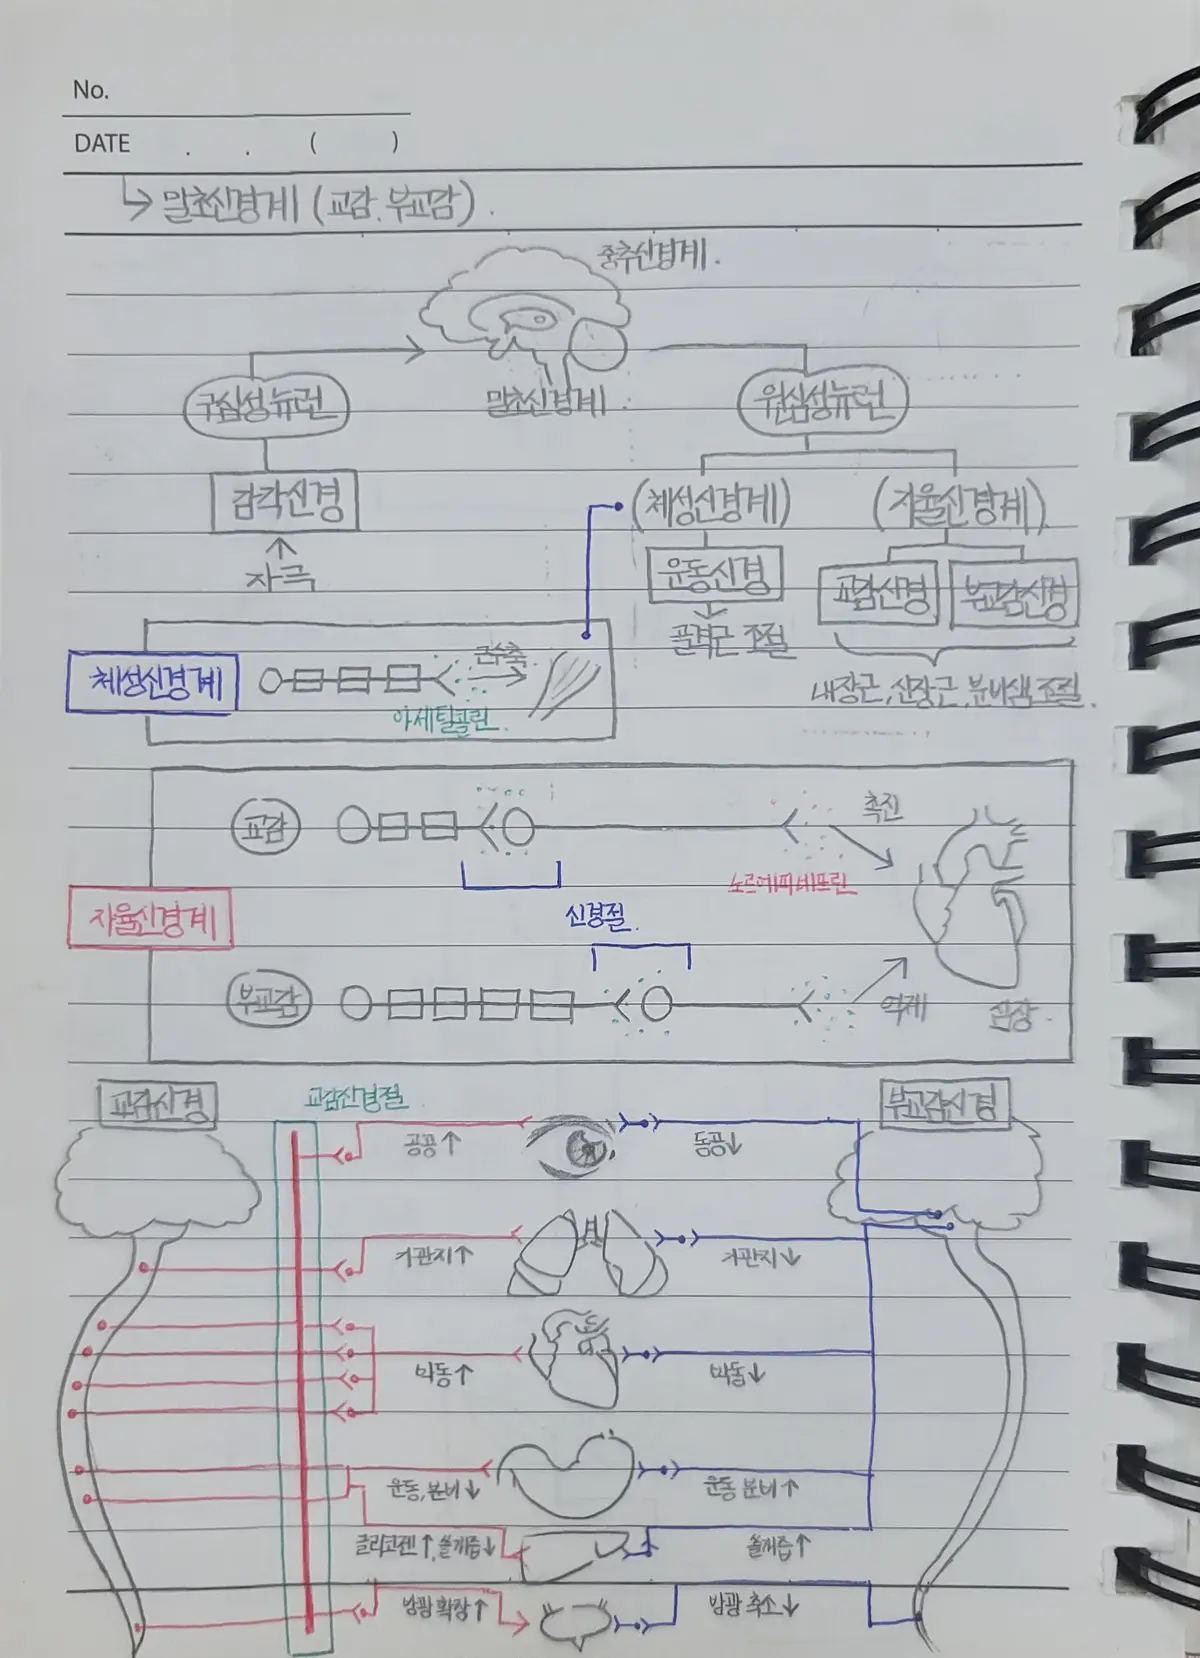 No.
DATE . . ( )
↳ 말초신경계 (교감, 부교감).
중추신경계.
구심성뉴런
말초신경계.
원심성뉴런
감각신경
(체성신경계)
(자율신경계)
자극
운동신경
교감신경
부교감신경
골격근 조절
내장근, 심장근, 분비샘 조절.
체성신경계
근수축
아세틸콜린.
교감
촉진
노르에피네프린
자율신경계
신경절.
부교감
억제
심장.
교감신경
교감신경절.
부교감신경
공공↑
동공↓
기관지↑
기관지↓
박동↑
박동↓
운동, 분비↓
운동 분비↑
글리코겐↑, 쓸개즙↓
쓸개즙↑
방광 확장↑
방광 축소↓